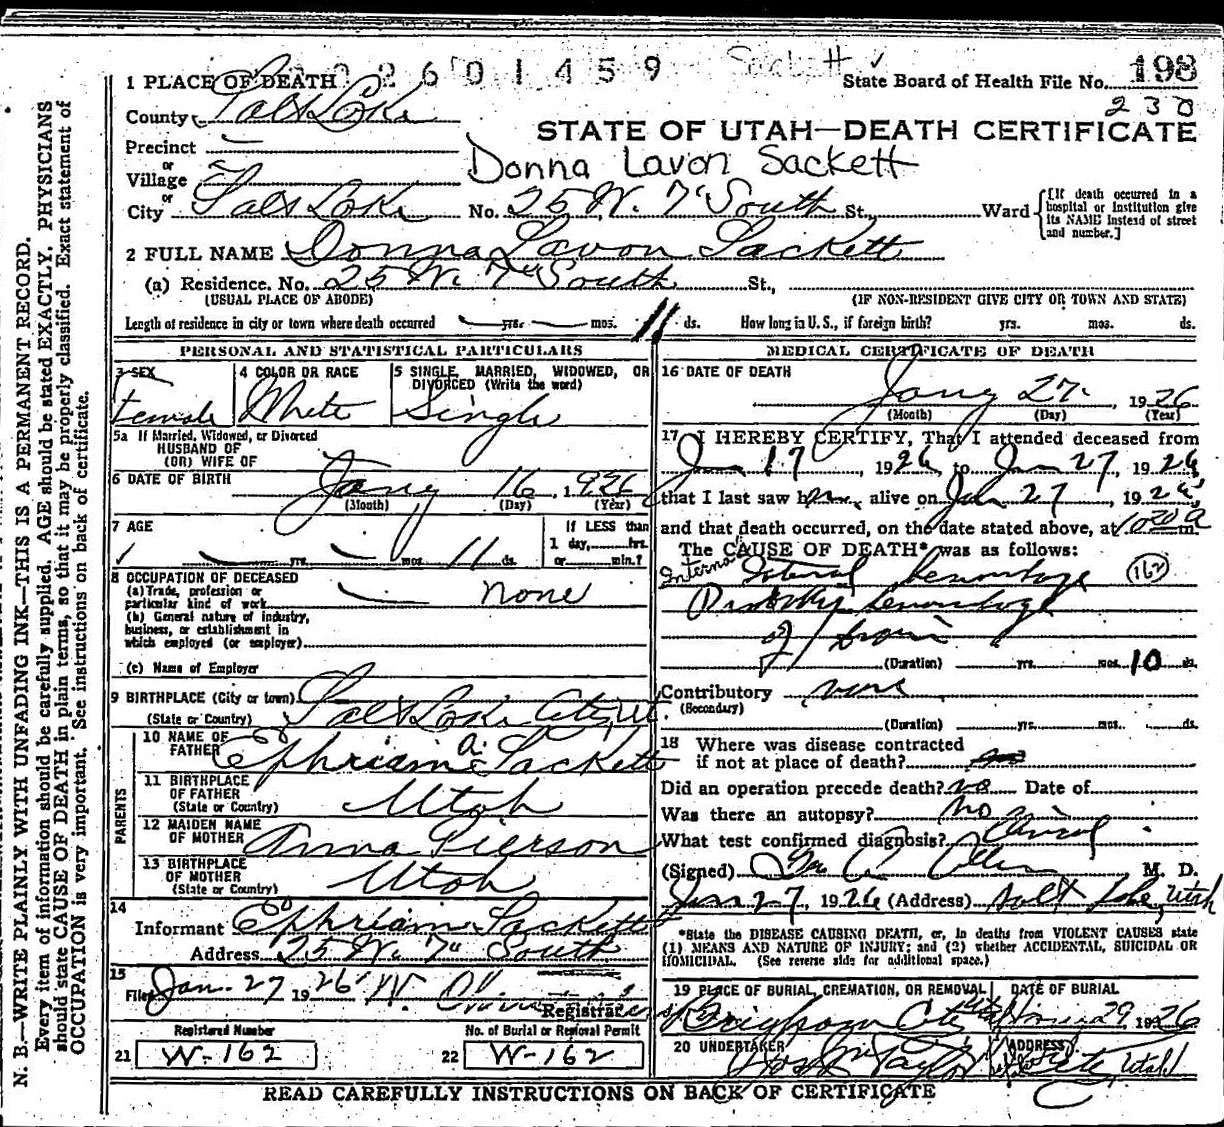 2601459 Sackett ✓
State Board of Health File No. 198
230
1 PLACE OF DEATH
County Salt Lake
STATE OF UTAH—DEATH CERTIFICATE
Precinct
Donna Lavon Sackett
or
Village
or
City Salt Lake No. 25 W. 7" South St., Ward
[If death occurred in a hospital or institution give its NAME instead of street and number.]
2 FULL NAME Donna Lavon Sackett
(a) Residence. No. 25 W. 7" South St.,
(USUAL PLACE OF ABODE) (IF NON-RESIDENT GIVE CITY OR TOWN AND STATE)
Length of residence in city or town where death occurred — yrs. — mos. 11 ds. How long in U. S., if foreign birth? yrs. mos. ds.
PERSONAL AND STATISTICAL PARTICULARS
3 SEX
Female
4 COLOR OR RACE
White
5 SINGLE, MARRIED, WIDOWED, OR DIVORCED (Write the word)
Single
5a If Married, Widowed, or Divorced
HUSBAND OF
(OR) WIFE OF
6 DATE OF BIRTH Jany 16, 1926
(Month) (Day) (Year)
7 AGE
— yrs. — mos. 11 ds.
If LESS than
1 day, hrs.
or min.?
8 OCCUPATION OF DECEASED
(a) Trade, profession or
particular kind of work — none
(b) General nature of industry,
business, or establishment in
which employed (or employer)
(c) Name of Employer
9 BIRTHPLACE (City or town) Salt Lake City, Ut.
(State or Country)
PARENTS
10 NAME OF
FATHER Ephriam A. Sackett
11 BIRTHPLACE
OF FATHER
(State or Country) Utah
12 MAIDEN NAME
OF MOTHER Anna Pierson
13 BIRTHPLACE
OF MOTHER
(State or Country) Utah
14
Informant Ephriam Sackett
Address 25 W. 7" South
15
Filed Jan. 27 1926 W.
Registrar
Registered Number No. of Burial or Removal Permit
21 W-162 22 W-162
MEDICAL CERTIFICATE OF DEATH
16 DATE OF DEATH
Jany 27, 1926
(Month) (Day) (Year)
17 I HEREBY CERTIFY, That I attended deceased from
Jan 17, 1926, to Jan 27, 1926,
that I last saw her alive on Jan 27, 1926,
and that death occurred, on the date stated above, at 10 20 a m.
The CAUSE OF DEATH* was as follows:
Internal hemorrhage (162)
hemorrhage
of
(Duration) yrs. mos. 10 ds.
Contributory none
(Secondary)
(Duration) yrs. mos. ds.
18 Where was disease contracted
if not at place of death?
Did an operation precede death? no Date of
Was there an autopsy? no
What test confirmed diagnosis? Clinical
(Signed) Allen M. D.
Jan 27, 1926 (Address) Salt Lake, Utah
*State the DISEASE CAUSING DEATH, or, in deaths from VIOLENT CAUSES state
(1) MEANS AND NATURE OF INJURY; and (2) whether ACCIDENTAL, SUICIDAL OR
HOMICIDAL. (See reverse side for additional space.)
19 PLACE OF BURIAL, CREMATION, OR REMOVAL DATE OF BURIAL
Brigham City Utah 29 1926
20 UNDERTAKER ADDRESS
Taylor City, Utah
READ CAREFULLY INSTRUCTIONS ON BACK OF CERTIFICATE
N. B.—WRITE PLAINLY WITH UNFADING INK—THIS IS A PERMANENT RECORD.
Every item of information should be carefully supplied. AGE should be stated EXACTLY. PHYSICIANS
should state CAUSE OF DEATH in plain terms, so that it may be properly classified. Exact statement of
OCCUPATION is very important. See instructions on back of certificate.